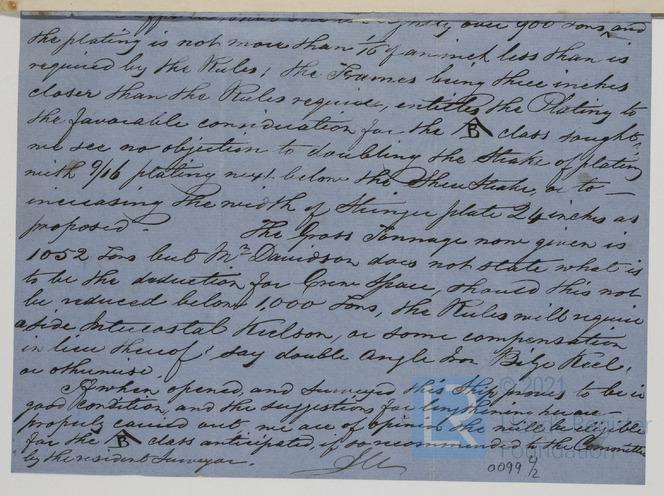 over 900 Tons, and
the plating is not more than 1/16 of an inch less than is
required by the Rules, the Frames being three inches
closer than the Rules require, entitles the Plating to
the favorable consideration for the B class sought,
we see no objection to doubling the Strake of plating
with 9/16 plating next below the Sheerstrake, or to
increasing the width of Stringer plate 24 inches as
proposed. The Gross Tonnage now given is
1052 Tons but Mr Davidson does not state what is
to be the deduction for Crew Space, should this not
be reduced below 1,000 Tons, the Rules will require
a side Intercostal Keelson, or some compensation
in lieu thereof, say double Angle Iron Bilge Keel,
or otherwise.
If when opened and surveyed this Ship proves to be in
good condition, and the suggestions for lengthening her are
properly carried out, we are of opinion she will be eligible
for the B class anticipated, if so recommended to the Committee
by the resident Surveyor.
0099 2/2
LR
© 2021
Lloyd's Register
Foundation